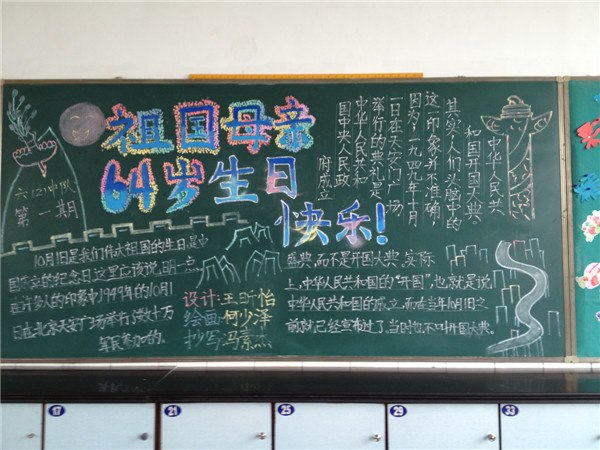 祖国母亲
64岁生日
快乐!
六(2)中队
第一期
10月1日是我们伟大祖国的生日,是中
国成立的纪念日,这里应该说明一点
在许多人的印象中,1949年的10月1
日,在北京天安门广场举行了数十万
军民参加的。
中华人民共
和国开国大典。
其实,人们头脑中的
这一印象并不准确
因为,一九四九年十月
一日在天安门广场
举行的典礼是
中华人民共和
国中央人民政
府成立
盛典,而不是开国大典。实际
上,中华人民共和国的“开国”,也就是说
中华人民共和国的成立,而在当年10月1日之
前就已经宣布过了,当时也不叫开国大典。
设计:王昕怡
绘画:何少泽
抄写:冯素杰
17
21
25
29
33